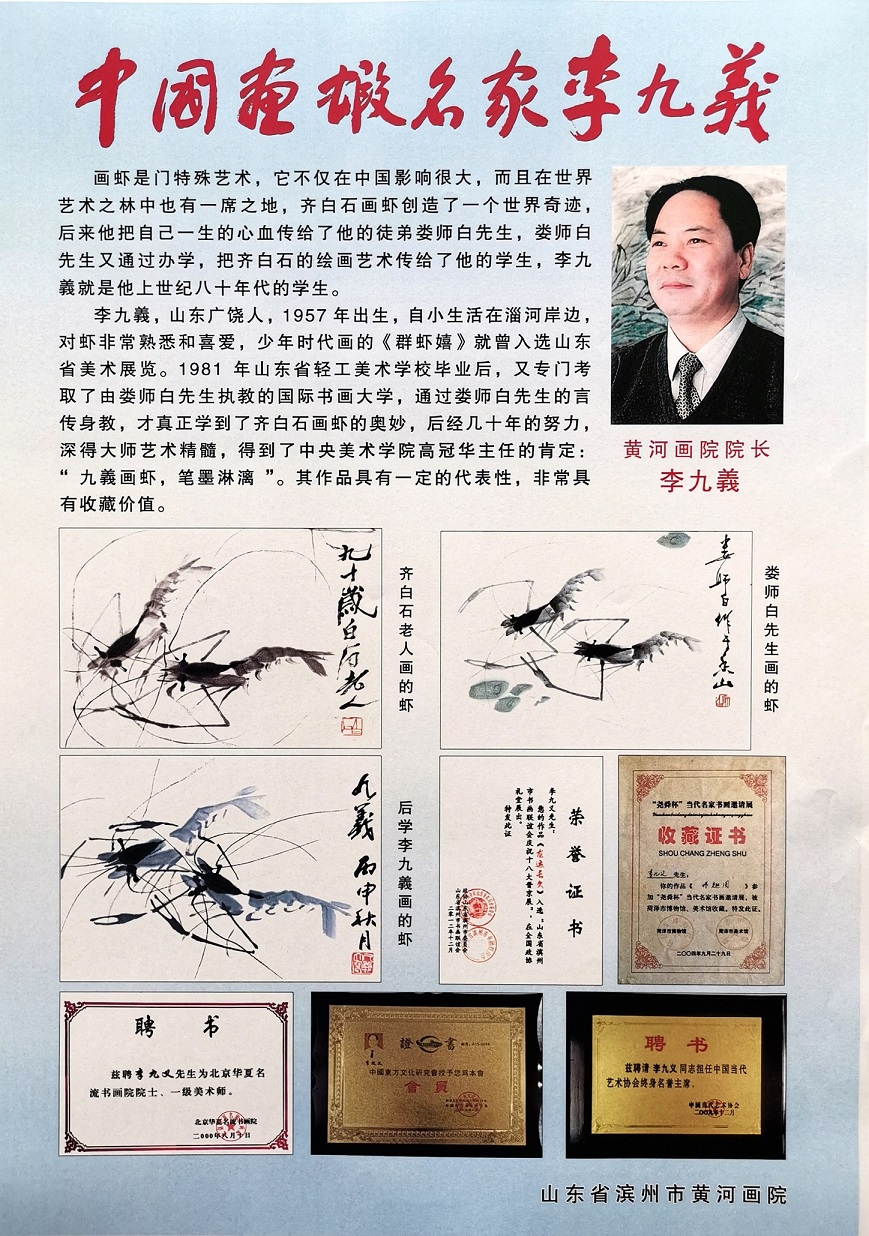 中国画虾名家李九義
画虾是门特殊艺术，它不仅在中国影响很大，而且在世界
艺术之林中也有一席之地，齐白石画虾创造了一个世界奇迹，
后来他把自己一生的心血传给了他的徒弟娄师白先生，娄师白
先生又通过办学，把齐白石的绘画艺术传给了他的学生，李九
義就是他上世纪八十年代的学生。
李九義，山东广饶人，1957 年出生，自小生活在淄河岸边，
对虾非常熟悉和喜爱，少年时代画的《群虾嬉》就曾入选山东
省美术展览。1981 年山东省轻工美术学校毕业后，又专门考
取了由娄师白先生执教的国际书画大学，通过娄师白先生的言
传身教，才真正学到了齐白石画虾的奥妙，后经几十年的努力，
深得大师艺术精髓，得到了中央美术学院高冠华主任的肯定：
“ 九義画虾，笔墨淋漓 ”。其作品具有一定的代表性，非常具
有收藏价值。
黄河画院院长
李九義
九十岁白石老人
齐白石老人画的虾
娄师白作于泰山
娄师白先生画的虾
九義 丙申秋月
后学李九義画的虾
荣誉证书
李九义先生：
您的作品《龙运长久》入选：山东省滨州
市书画联谊会庆祝十八大晋京展：，在全国政协
礼堂展出。
特发此证
山东省滨州市书画联谊会
二零一二年十二月
“尧舜杯”当代名家书画邀请展
收藏证书
SHOU CHANG ZHENG SHU
李九义 先生：
你的作品《 》参
加“尧舜杯”当代名家书画邀请展，被
菏泽市博物馆、美术馆收藏。特发此证。
菏泽市博物馆 菏泽市美术馆
二〇〇四年九月二十九日
聘 书
兹聘李九义先生为北京华夏名
流书画院院士、一级美术师。
北京华夏名流书画院
二000年八月十日
證 書
李九义
中國東方文化研究會授予您爲本會
會員
聘 书
兹聘请 李九义 同志担任中国当代
艺术协会终身名誉主席。
中国当代艺术协会
二00九年十二月
山东省滨州市黄河画院